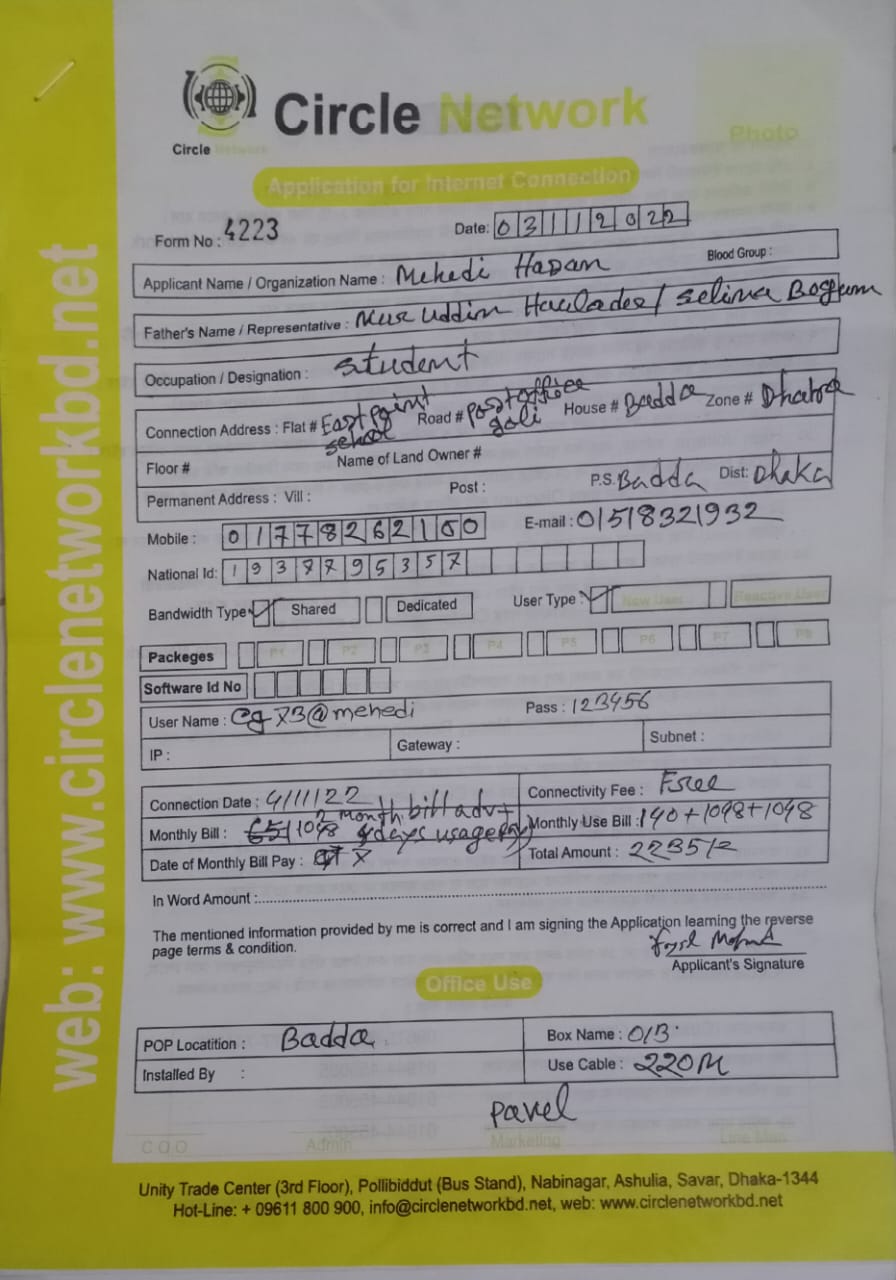 Circle Network
Circle Network
Photo
Application for Internet Connection
Form No : 4223
Date: 03112022
Applicant Name / Organization Name : Mehedi Hasan
Blood Group :
Father's Name / Representative : Nur Uddin Haulader / Selina Begum
Occupation / Designation : Student
Connection Address : Flat # East point school Road # post office goli House # Badda Zone # Dhaka
Floor # Name of Land Owner #
Permanent Address : Vill : Post : P.S. Badda Dist: Dhaka
Mobile : 01778262160 E-mail : 01518321932
National Id: 1938795357
Bandwidth Type Shared Dedicated User Type : New User Reactive User
Packeges P1 P2 P3 P4 P5 P6 P7 P8
Software Id No
User Name : cg73@mehedi Pass : 123456
IP : Gateway : Subnet :
Connection Date : 4/11/22 Connectivity Fee : Free
Monthly Bill : 1098 2 month bill adv + 4 days usage Monthly Use Bill : 140+1098+1098
Date of Monthly Bill Pay : Total Amount : 2235/=
In Word Amount :
The mentioned information provided by me is correct and I am signing the Application learning the reverse
page terms & condition.
Applicant's Signature
Office Use
POP Locatition : Badda Box Name : O/B
Installed By : Use Cable : 220M
Pavel
C O O Admin Marketing Line Man
Unity Trade Center (3rd Floor), Pollibiddut (Bus Stand), Nabinagar, Ashulia, Savar, Dhaka-1344
Hot-Line: + 09611 800 900, info@circlenetworkbd.net, web: www.circlenetworkbd.net
web: www.circlenetworkbd.net